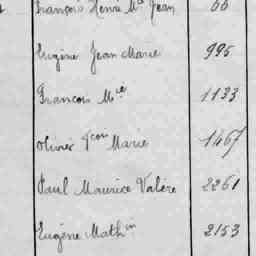 François Henri M^ie Jean 66
Eugène Jean Marie 995
François M^ie 1133
Olivier F^cois Marie 1467
Paul Maurice Valère 2261
Eugène Math^in 2153